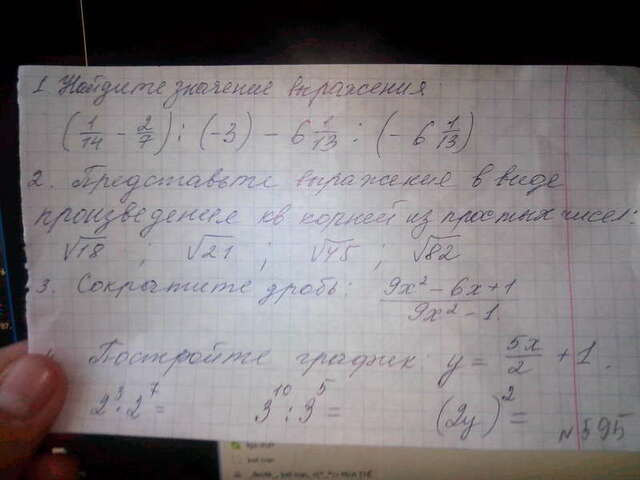 1 Найдите значение выражения
(1/14 - 2/7) : (-3) - 6 1/13 : (-6 1/13)
2. Представьте выражение в виде
произведения кв корней из простых чисел:
√18 ; √21 ; √45 ; √82
3. Сократите дробь: (9x² - 6x + 1)/(9x² - 1)
4. Постройте график y = 5x/2 + 1.
2³ · 2⁷ = 3¹⁰ : 3⁵ = (2y)² =
№595